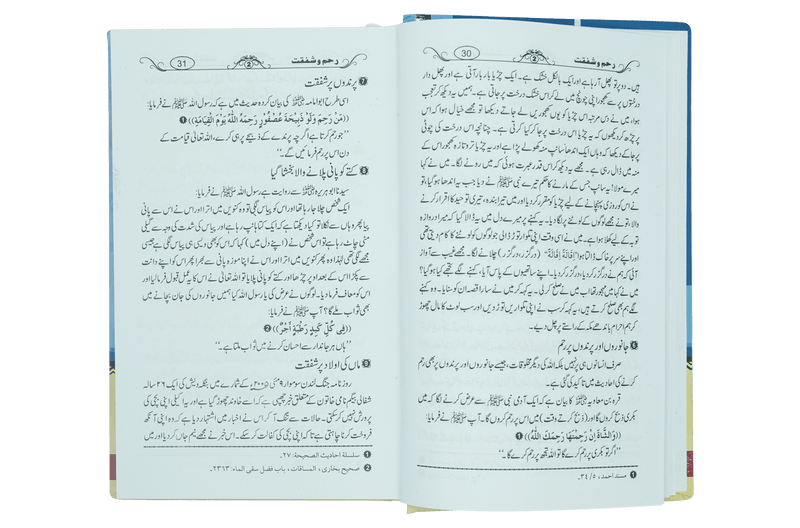 رحم و شفقت
2
30
ہیں۔ دو پر تو پھل آ رہا ہے اور ایک بالکل خشک ہے۔ ایک چڑیا بار بار آتی ہے اور پھل دار
درختوں پر سے کھجور اپنی چونچ میں لے کر اس خشک درخت پر جاتی ہے۔ ہمیں یہ دیکھ کر تعجب
ہوا، میں نے دس مرتبہ اس چڑیا کو یوں کھجوریں لے جاتے دیکھا تو مجھے خیال ہوا کہ اس
پر چڑھ کر دیکھوں کہ یہ چڑیا اس درخت پر جا کر کیا کرتی ہے۔ چنانچہ اس درخت کی چوٹی
پر جا کے دیکھا کہ وہاں ایک اندھا سانپ منہ کھولے پڑا ہے اور یہ چڑیا تر و تازہ کھجور اس کے
منہ میں ڈال رہی ہے۔ مجھے یہ دیکھ کر اس قدر عبرت ہوئی کہ میں رونے لگا۔ میں نے کہا
میرے مولا! یہ سانپ جس کے مارنے کا حکم تیرے نبی ﷺ نے دیا جب یہ اندھا ہو گیا، تو
نے اس کو روزی پہنچانے کے لیے چڑیا کو مقرر کر دیا اور میں تیرا بندہ، تیری توحید کا اقرار کرنے
والا، تو نے مجھے لوگوں کے لوٹنے پر لگا دیا۔ یہ کہنے پر میرے دل میں یہ ڈالا گیا کہ میرا دروازہ
توبہ کے لیے کھلا ہوا ہے۔ میں نے اسی وقت اپنی تلوار توڑ ڈالی جو لوگوں کو لوٹنے کا کام دیتی تھی
اور اپنے سر پر خاک ڈالتا ہوا اِقَالَةً اِقَالَةً” (درگزر، درگزر) چلانے لگا۔ مجھے غیب سے آواز
آئی کہ ہم نے درگزر کر دیا، درگزر کر دیا۔ میں اپنے ساتھیوں کے پاس آیا، کہنے لگے تجھے کیا ہو گیا؟
میں نے کہا میں مجبور تھا اب میں نے صلح کر لی۔ یہ کہہ کر میں نے سارا قصہ ان کو سنایا۔ وہ کہنے
لگے ہم بھی صلح کرتے ہیں، یہ کہہ کر سب نے اپنی تلواریں توڑ دیں اور سب لوٹ کا مال چھوڑ
کر ہم احرام باندھے مکہ کے راستے پر چل دیے۔
6 جانوروں اور پرندوں پر رحم
صرف انسانوں ہی پر نہیں بلکہ اللہ کی دیگر مخلوقات، جیسے جانوروں اور پرندوں پر بھی رحم
کرنے کی احادیث میں تاکید کی گئی ہے۔
قرہ بن معاویہ کا بیان ہے کہ ایک آدمی نبی ﷺ سے عرض کرنے لگا کہ میں
بکری ذبح کروں گا اور (ذبح کرتے وقت) میں اس پر رحم کروں گا۔ آپ ﷺ نے فرمایا:
((وَالشَّاةَ اِنْ رَحِمْتَهَا رَحِمَكَ اللّٰهُ)) 1
”اگر تو بکری پر رحم کرے گا تو اللہ تجھ پر رحم کرے گا۔“
1 مسند احمد، ۵/ ۳۴۔
رحم و شفقت
2
31
7 پرندوں پر شفقت
اسی طرح ابو امامہ کی بیان کردہ حدیث میں ہے کہ رسول اللہ ﷺ نے فرمایا:
((مَنْ رَحِمَ وَلَوْ ذَبِيْحَةَ عُصْفُوْرٍ رَحِمَهُ اللّٰهُ يَوْمَ الْقِيَامَةِ)) 1
”جو رحم کرتا ہے اگرچہ پرندے کے ذبیحے پر ہی کرے، اللہ تعالیٰ قیامت کے
دن اس پر رحم فرمائیں گے۔“
8 کتے کو پانی پلانے والا بخشا گیا
سیدنا ابو ہریرہ سے روایت ہے رسول اللہ ﷺ نے فرمایا:
ایک شخص چلا جا رہا تھا اور اس کو پیاس لگی تو وہ کنویں میں اترا اور اس نے اس سے پانی
پیا پھر وہاں سے نکلا تو کیا دیکھتا ہے کہ ایک کتا ہانپ رہا ہے اور پیاس کی شدت کی وجہ سے گیلی
مٹی چاٹ رہا ہے تو اس شخص نے (اپنے دل میں) کہا کہ اس کو بھی ویسی ہی پیاس لگی ہے جیسی
مجھے لگی تھی لہٰذا وہ پھر کنویں میں اترا اور اس نے اپنا موزہ پانی سے بھرا پھر اس کو اپنے دانت
سے پکڑا اس کے بعد اوپر چڑھا اور کتے کو پانی پلایا تو اللہ تعالیٰ نے اس کا یہ عمل قبول فرما لیا اور
اس کو معاف فرما دیا۔ لوگوں نے عرض کی یا رسول اللہ کیا ہمیں جانوروں کی جان بچانے میں
بھی ثواب ملے گا؟ آپ ﷺ نے فرمایا:
((فِى كُلِّ كَبِدٍ رَطْبَةٍ اَجْرٌ)) 2
”ہاں ہر جاندار سے احسان کرنے میں ثواب ملتا ہے۔“
9 ماں کی اولاد پر شفقت
روزنامہ جنگ لندن سوموار ۹ مئی ۲۰۰۵ء کے شمارے میں بنگلہ دیش کی ایک ۲۶ سالہ
شفالی بیگم نامی خاتون کے متعلق خبر چھپی ہے کہ اسے خاوند چھوڑ گیا ہے اور یہ اکیلی اپنی بچی کی
پرورش نہیں کر سکتی۔ حالات سے تنگ آ کر اس نے اخبار میں اشتہار دیا ہے کہ وہ اپنی آنکھ
فروخت کرنا چاہتی ہے تاکہ اپنی بچی کی کفالت کر سکے۔ اس خبر نے مجھے نیم جاں کر دیا اور میں
1 سلسلة احاديث الصحيحة: ۲۷۔
2 صحيح بخارى، المساقات، باب فضل سقى الماء: ۲۳۶۳